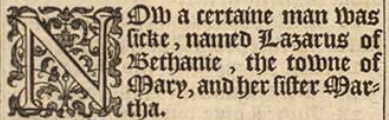 NOw a certaine man was
sicke, named Lazarus of
Bethanie, the towne of
Mary, and her sister Mar-
tha.